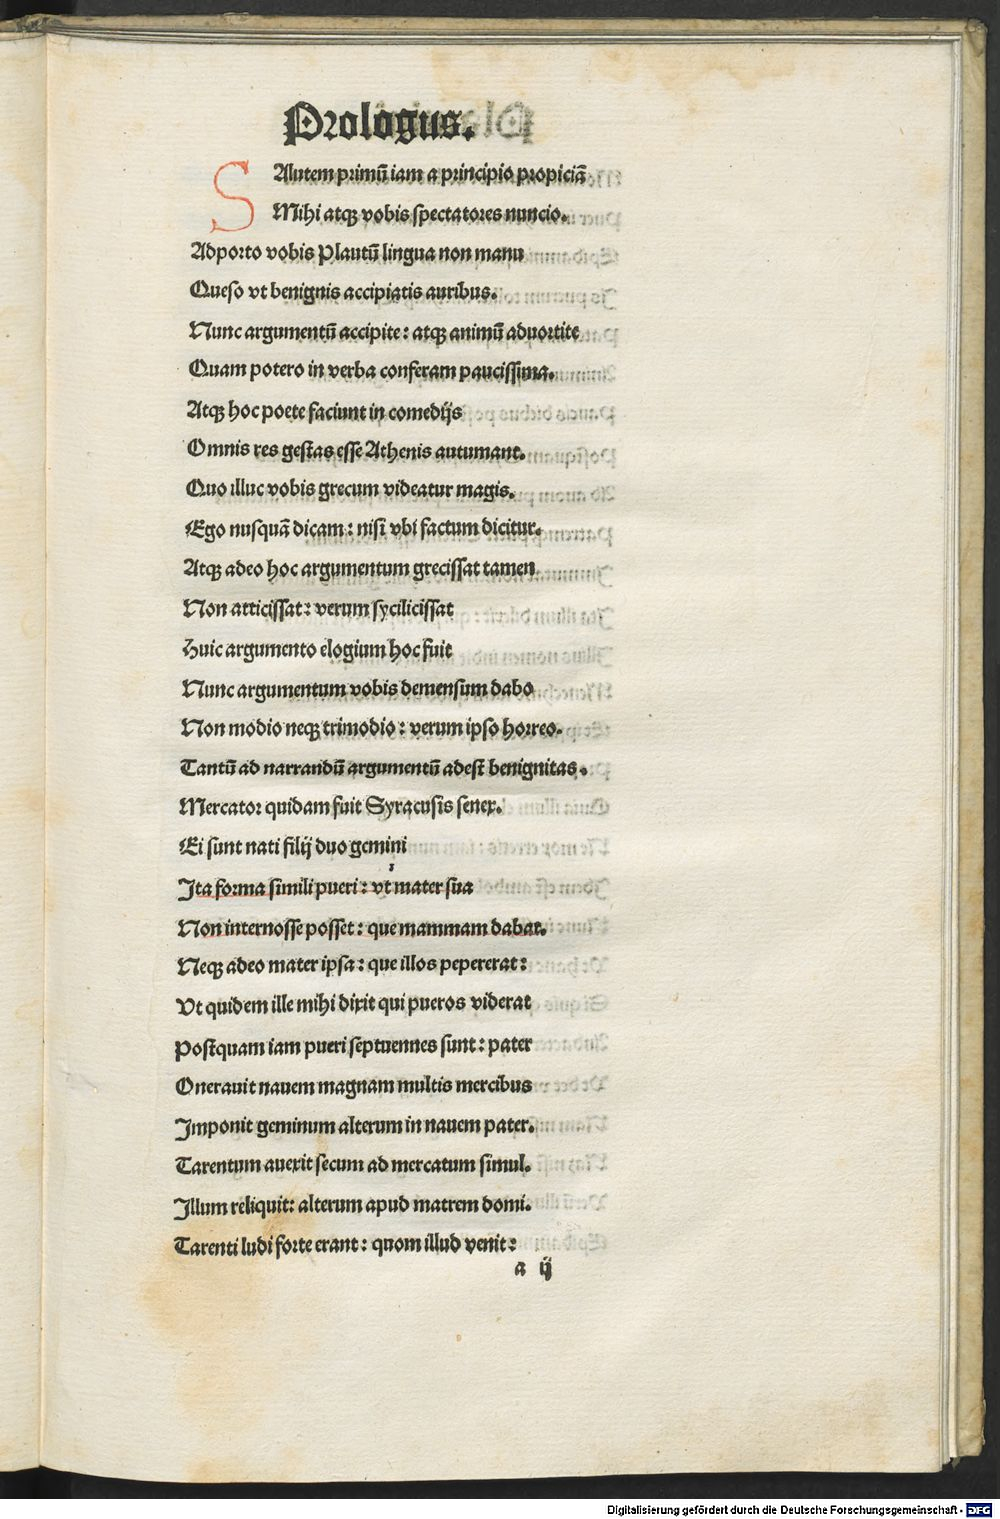 Prologus.
SAlutem primū iam a principio propiciā
Mihi atqꝫ vobis spectatores nuncio.
Adporto vobis Plautū lingua non manu
Queso vt benignis accipiatis auribus.
Nunc argumentū accipite: atqꝫ animū aduortite
Quam potero in verba conferam paucissima.
Atqꝫ hoc poete faciunt in comedijs
Omnis res gestas esse Athenis autumant.
Quo illuc vobis grecum videatur magis.
Ego nusquā dicam: nisi vbi factum dicitur.
Atqꝫ adeo hoc argumentum grecissat tamen
Non atticissat: verum sycilicissat
Huic argumento elogium hoc fuit
Nunc argumentum vobis demensum dabo
Non modio neqꝫ trimodio: verum ipso horreo.
Tantū ad narrandū argumentū adest benignitas.
Mercator quidam fuit Syracusis senex.
Ei sunt nati filij duo gemini
Ita forma simili pueri: vt mater sua
Non internosse posset: que mammam dabat.
Neqꝫ adeo mater ipsa: que illos pepererat:
Vt quidem ille mihi dixit qui pueros viderat
Postquam iam pueri septuennes sunt: pater
Onerauit nauem magnam multis mercibus
Imponit geminum alterum in nauem pater.
Tarentum auexit secum ad mercatum simul.
Illum reliquit: alterum apud matrem domi.
Tarenti ludi forte erant: quom illud venit:
a ij
Digitalisierung gefördert durch die Deutsche Forschungsgemeinschaft - DFG